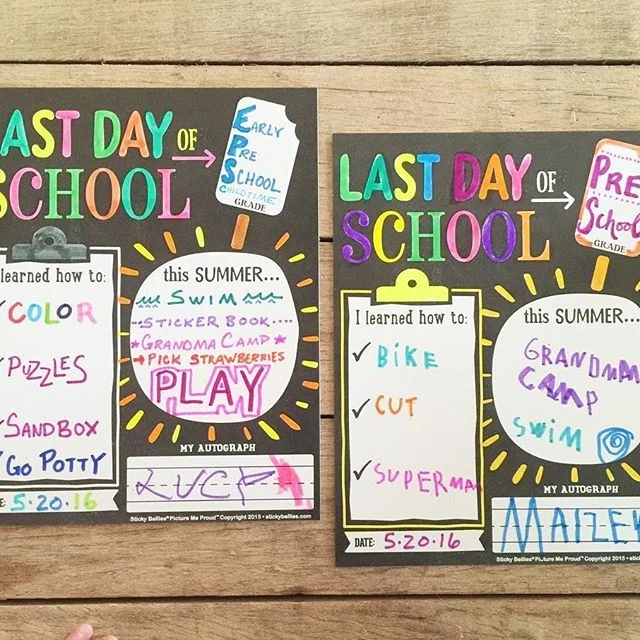 LAST DAY OF
SCHOOL
EARLY
PRE
SCHOOL
CHILDTIME
GRADE
I learned how to:
COLOR
PUZZLES
SANDBOX
GO POTTY
this SUMMER...
SWIM
STICKER BOOK
GRANDMA CAMP
PICK STRAWBERRIES
PLAY
MY AUTOGRAPH
LUCY
5-20-16
Sticky Bellies® Picture Me Proud™ Copyright 2015 • stickybellies.com
LAST DAY OF
SCHOOL
PRE
SCHOOL
GRADE
I learned how to:
BIKE
CUT
SUPERMAN
this SUMMER...
GRANDMA
CAMP
SWIM
MY AUTOGRAPH
MAIZEY
DATE: 5-20-16
Sticky Bellies® Picture Me Proud™ Copyright 2015 •